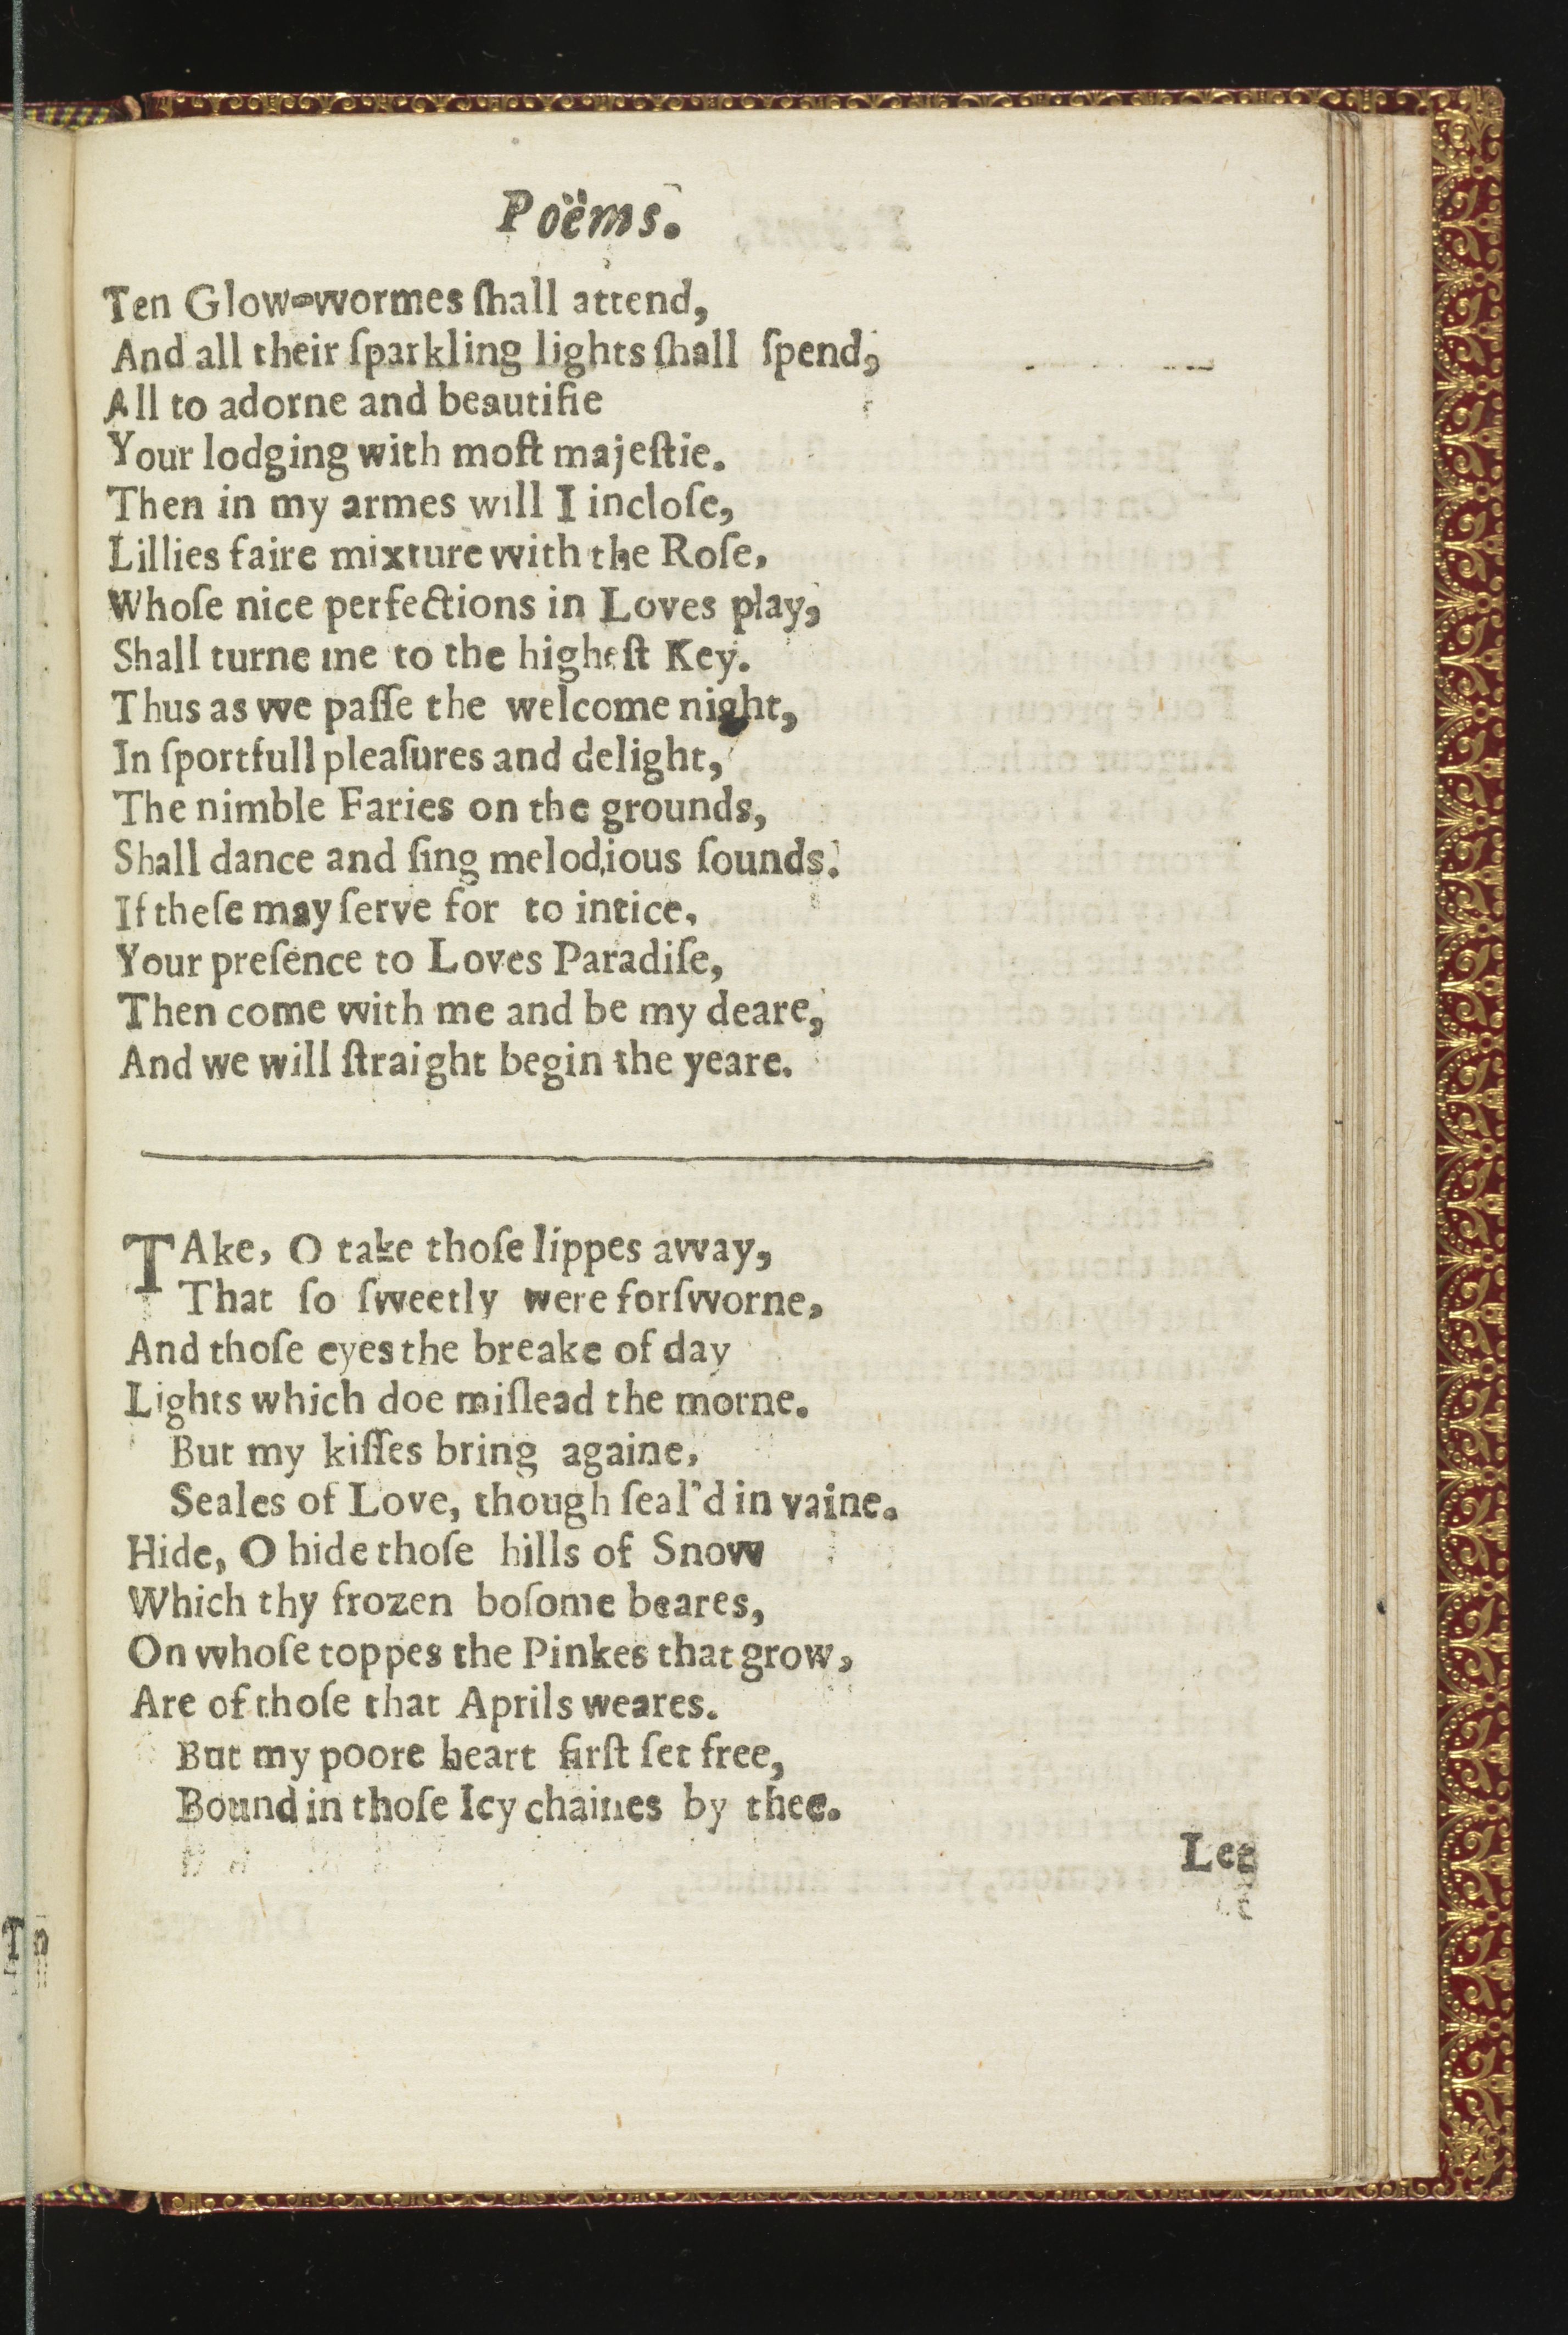 Poëms.
Ten Glow-wormes ſhall attend,
And all their ſparkling lights ſhall ſpend,
All to adorne and beautifie
Your lodging with moſt majeſtie.
Then in my armes will I incloſe,
Lillies faire mixture with the Roſe,
Whoſe nice perfections in Loves play,
Shall turne me to the higheſt Key.
Thus as we paſſe the welcome night,
In ſportfull pleaſures and delight,
The nimble Faries on the grounds,
Shall dance and ſing melodious ſounds.
If theſe may ſerve for to intice,
Your preſence to Loves Paradiſe,
Then come with me and be my deare,
And we will ſtraight begin the yeare.
TAke, O take thoſe lippes away,
That ſo ſweetly were forſworne,
And thoſe eyes the breake of day
Lights which doe miſlead the morne.
But my kiſſes bring againe,
Seales of Love, though ſeal'd in vaine.
Hide, O hide thoſe hills of Snow
Which thy frozen boſome beares,
On whoſe toppes the Pinkes that grow,
Are of thoſe that Aprils weares.
But my poore heart firſt ſet free,
Bound in thoſe Icy chaines by thee.
Leg